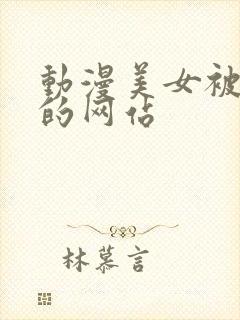 動漫美女被
的网站
林慕言